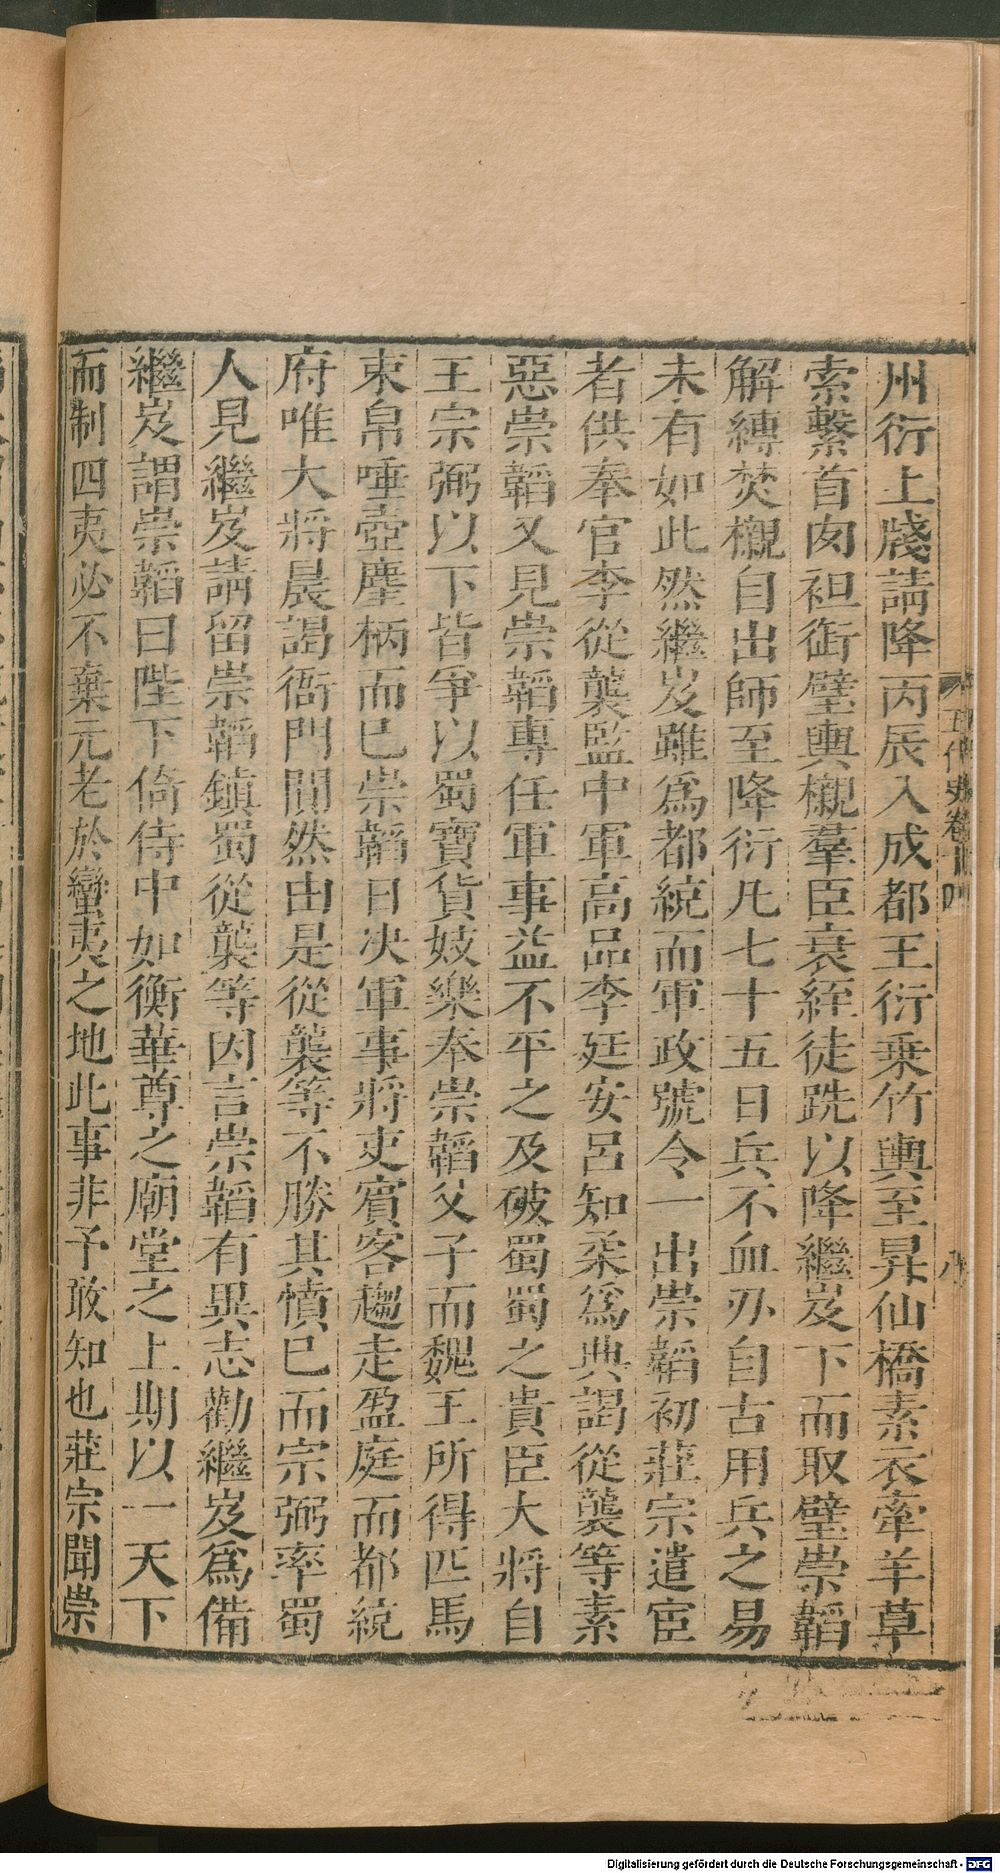 州衍上牋請降丙辰入成都王衍乗竹輿至昇仙橋素衣牽羊草
索繫首肉袒銜璧輿櫬羣臣衰絰徒跣以降繼岌下而取璧崇韜
解縛焚櫬自出師至降衍凡七十五日兵不血刃自古用兵之易
未有如此然繼岌雖爲都統而軍政號令一出崇韜初莊宗遣宦
者供奉官李從襲監中軍高品李廷安呂知柔爲典謁從襲等素
惡崇韜又見崇韜專任軍事益不平之及破蜀蜀之貴臣大將自
王宗弼以下皆爭以蜀寶貨妓樂奉崇韜父子而魏王所得匹馬
束帛唾壺塵柄而已崇韜日决軍事將吏賓客趨走盈庭而都統
府唯大將晨謁衙門閴然由是從襲等不勝其憤已而宗弼率蜀
人見繼岌請留崇韜鎮蜀從襲等因言崇韜有異志勸繼岌爲備
繼岌謂崇韜曰陛下倚侍中如衡華尊之廟堂之上期以一天下
而制四夷必不棄元老於蠻夷之地此事非予敢知也莊宗聞崇
五代史卷二十四
Digitalisierung gefördert durch die Deutsche Forschungsgemeinschaft - DFG